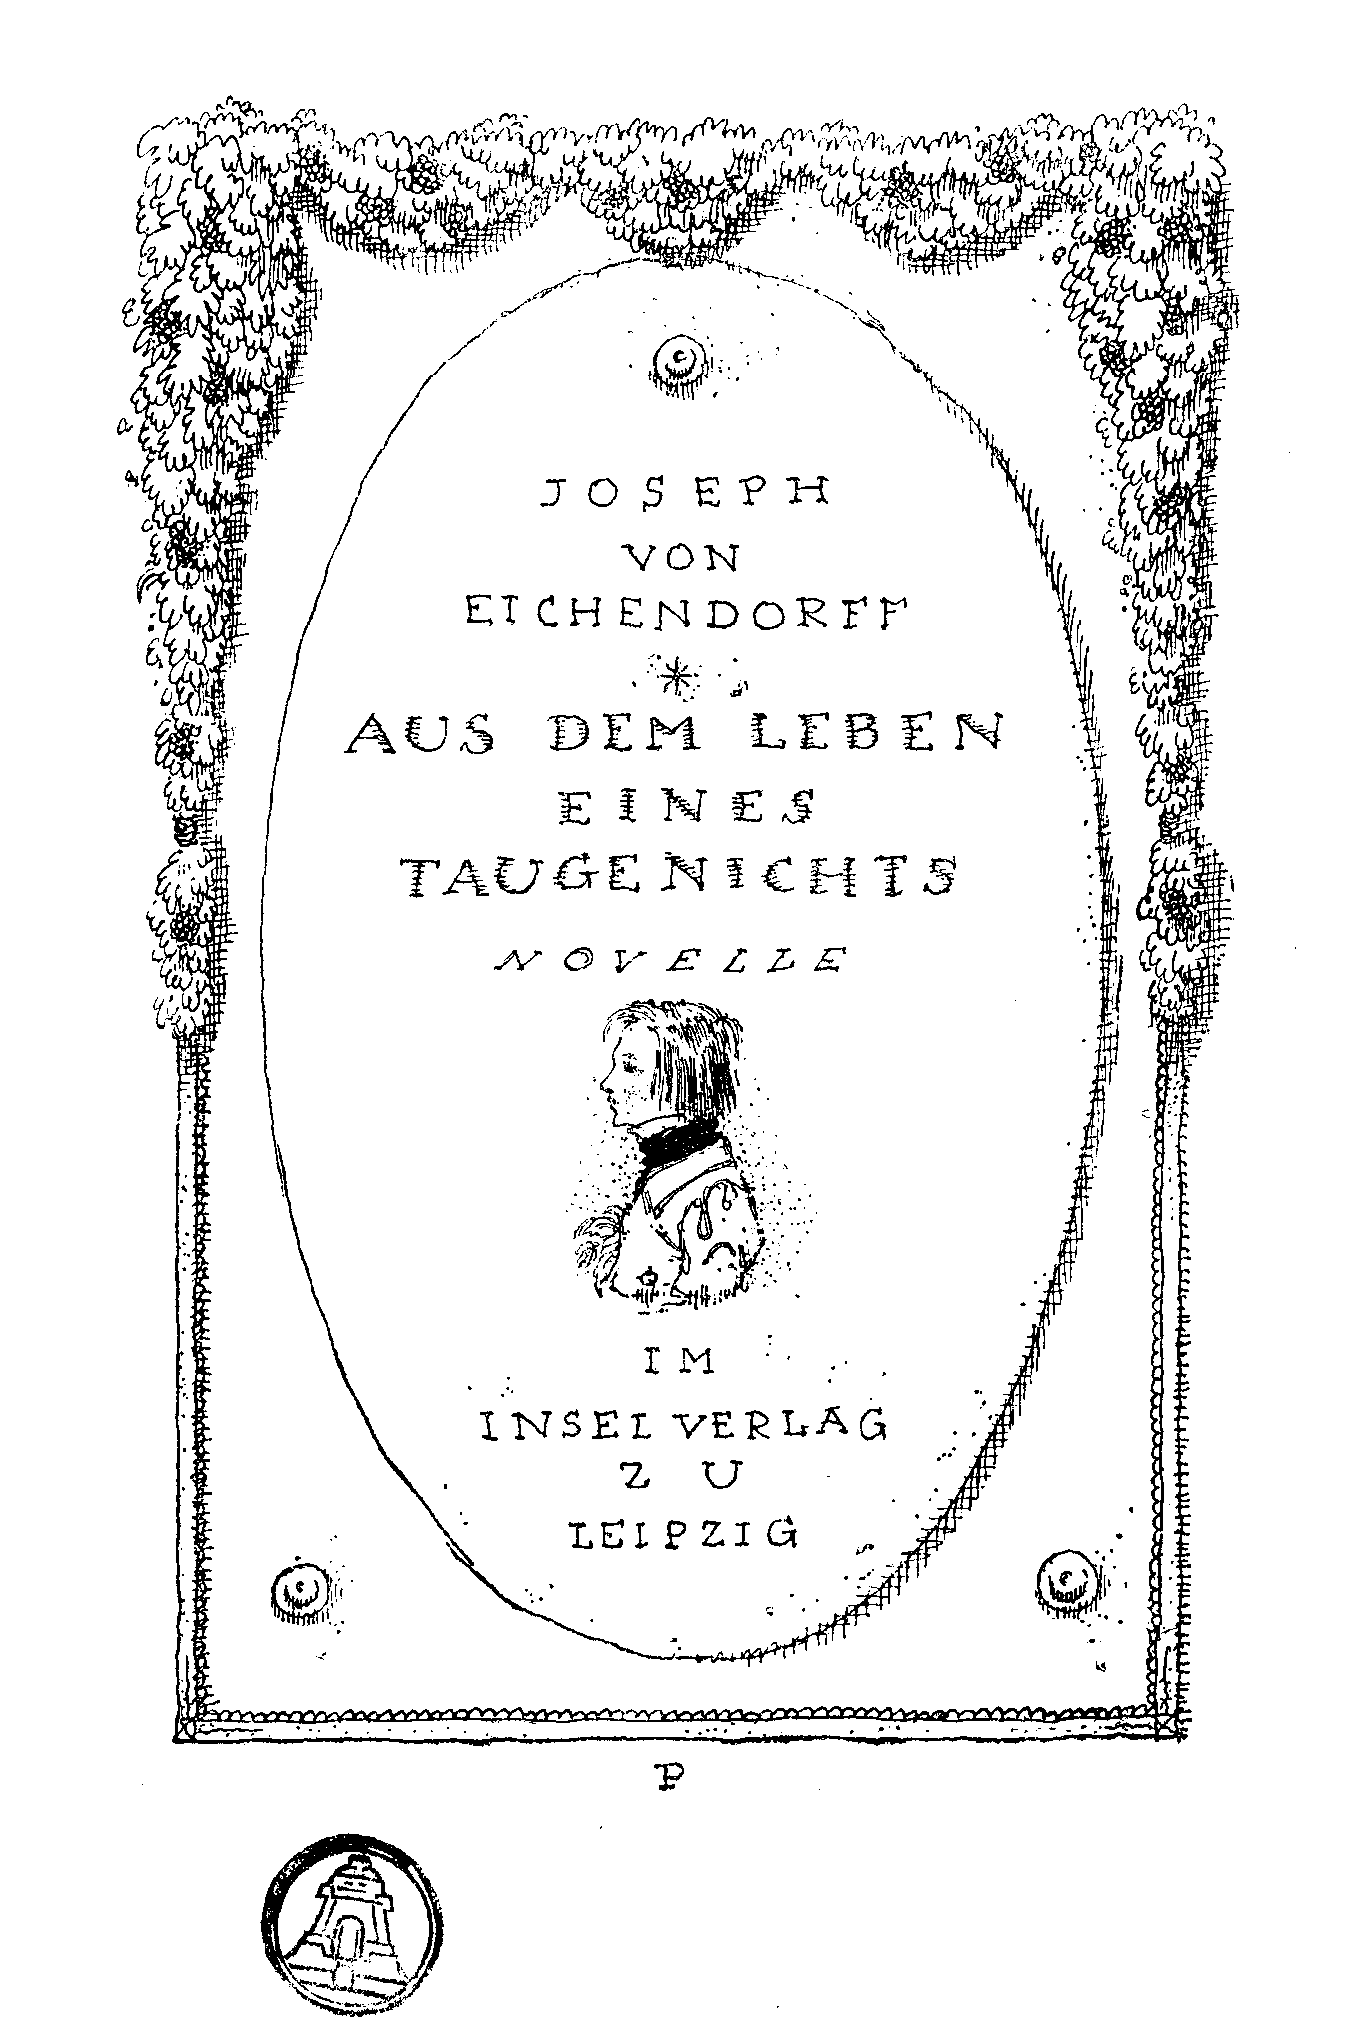 JOSEPH
VON
EICHENDORFF
*
AUS DEM LEBEN
EINES
TAUGENICHTS
NOVELLE
IM
INSEL VERLAG
ZU
LEIPZIG
P